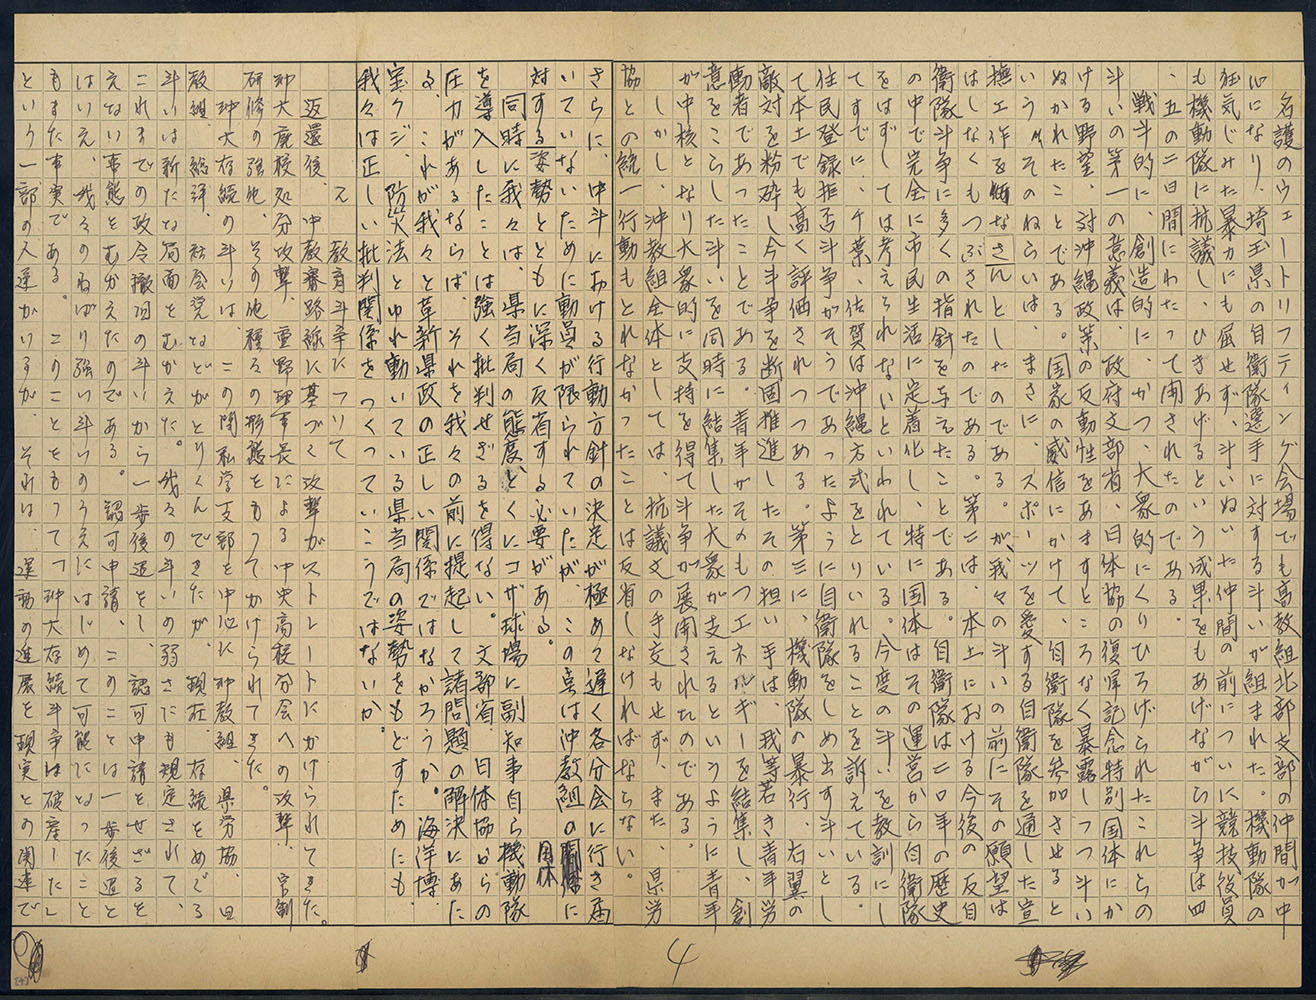 名護のウェートリフティング会場でも高教組北部支部の仲間が中
心になり、埼玉県の自衛隊選手に対する斗いが組まれた。機動隊の
狂気じみた暴力にも屈せず、斗いぬいた仲間の前についに競技役員
も機動隊に抗議し、ひきあげるという成果をもあげながら斗争は四
、五の二日間にわたって闘されたのである。
戦斗的に、創造的に、かつ、大衆的にくりひろげられたこれらの
斗いの第一の意義は、政府文部省、日体協の復帰記念特別国体にか
ける野望、対沖縄政策の反動性をあますところなく暴露しつつ斗い
ぬかれたことである。国家の威信にかけて、自衛隊を参加させると
いう、そのねらいは、まさに、スポーツを愛する自衛隊を通した宣
撫工作を なさんとしたのである。が、我々の斗いの前にその願望は
はしなくもつぶされたのである。第二は、本土における今後の反自
衛隊斗争に多くの指針を与えたことである。自衛隊は二〇年の歴史
の中で完全に市民生活に定着化し、特に国体はその運営から自衛隊
をはずしては考えられないといわれている。今度の斗いを教訓にし
てすでに、千葉、佐賀は沖縄方式をとりいれることを訴えている。
住民登録拒否斗争がそうであったように自衛隊をしめ出す斗いとし
て本土でも高く評価されつつある。第三に、機動隊の暴行、右翼の
敵対を粉砕し今斗争を断固推進したその担い手は、我等若き青年労
働者であったことである。青年がそのもつエネルギーを結集し、創
意をこらした斗いを同時に結集した大衆が支えるというように青年
が中核となり大衆的に支持を得て斗争が展開されたのである。
しかし、沖教組全体としては、抗議文の手交もせず、また、県労
協との統一行動もとれなかったことは反省しなければならない。
さらに、中斗における行動方針の決定が極めて遅く各分会に行き届
いていないために動員が限られていたが、この点は沖教組の国体に
対する姿勢とともに深く反省する必要がある。
同時に我々は、県当局の態度、とくにコザ球場に副知事自ら機動隊
を導入したことは強く批判せざるを得ない。文部省、日体協からの
圧力があるならば、それを我々の前に提起して諸問題の解決にあた
る、これが我々と革新県政の正しい関係ではなかろうか。海洋博、
宝クジ、防災法とゆれ動いている県当局の姿勢をもどすためにも、
我々は正しい批判関係をつくっていこうではないか。
2、教育斗争について
返還後、中教審路線に基づく攻撃がストレートにかけられてきた。
沖大廃校処分攻撃、重野理事長による中央高校分会への攻撃、官制
研修の強化、その他種々の形態をもってかけられてきた。
沖大存続の斗いは、この間私学支部を中心に沖教組、県労協、日
教組、総評、社会党などがとりくんできたが、現在、存続をめぐる
斗いは新たな局面をむかえた。我々の斗いの弱さにも規定されて、
これまでの政令撤回の斗いから一歩後退をし、認可申請をせざるを
えない事態をむかえたのである。認可申請、このことは一歩後退と
はいえ、我々のねばり強い斗いのうえにはじめて可能になったこと
もまた事実である。このことをもって「沖大存続斗争は破産した」
という一部の人達がいるが、それは、運動の進展を現実との関連で
4
[4]